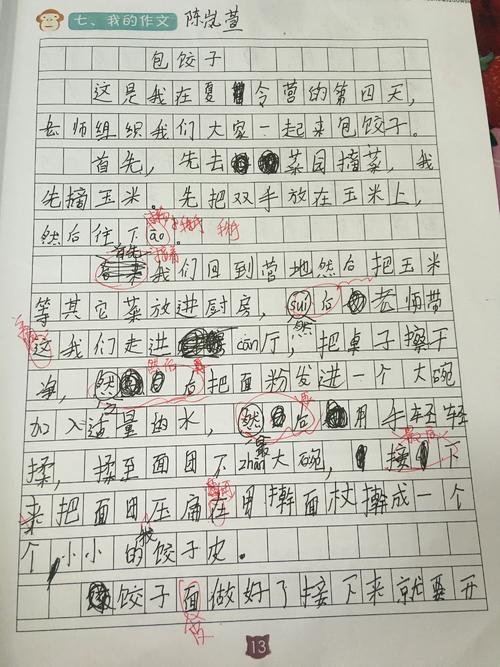 七、我的作文 陈岚萱
包饺子
这是我在夏令营的第四天,
老师组织我们大家一起来包饺子。
首先,先去菜园摘菜,我
先摘玉米。先把双手放在玉米上,
然后往下āo。
首先
我们回到营地然后把玉米
等其它菜放进厨房,suí后老师带
这我们走进cān厅,把桌子擦干
然后
净,然后把面粉发进一个大碗
加入适量的水,然后用手轻轻
最后
揉,揉至面团不zhān大碗,接下
来把面团压扁在用擀面杖擀成一个
个小小的饺子皮。
饺子面做好了接下来就要开
13